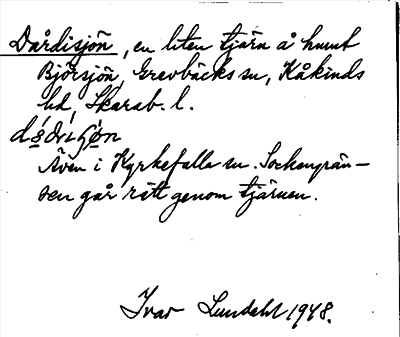 Dårdisjön, en liten tjärn å humt
Björsjön, Grevbäcks sn, Kåkinds
hd, Skarab. l.
Även i Kyrkefalla sn. Sockengrän-
sen går rätt genom tjärnen.
Ivar Lundahl 1948.